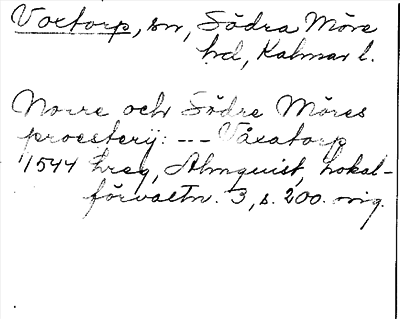 Voxtorp, sn, Södra Möre
hd, Kalmar l.
Norre och Södre Möres
proesterij: --- Våxatorp
1544 hreg, Almquist, Lokal-
förvaltn. 3, s. 200. orig.